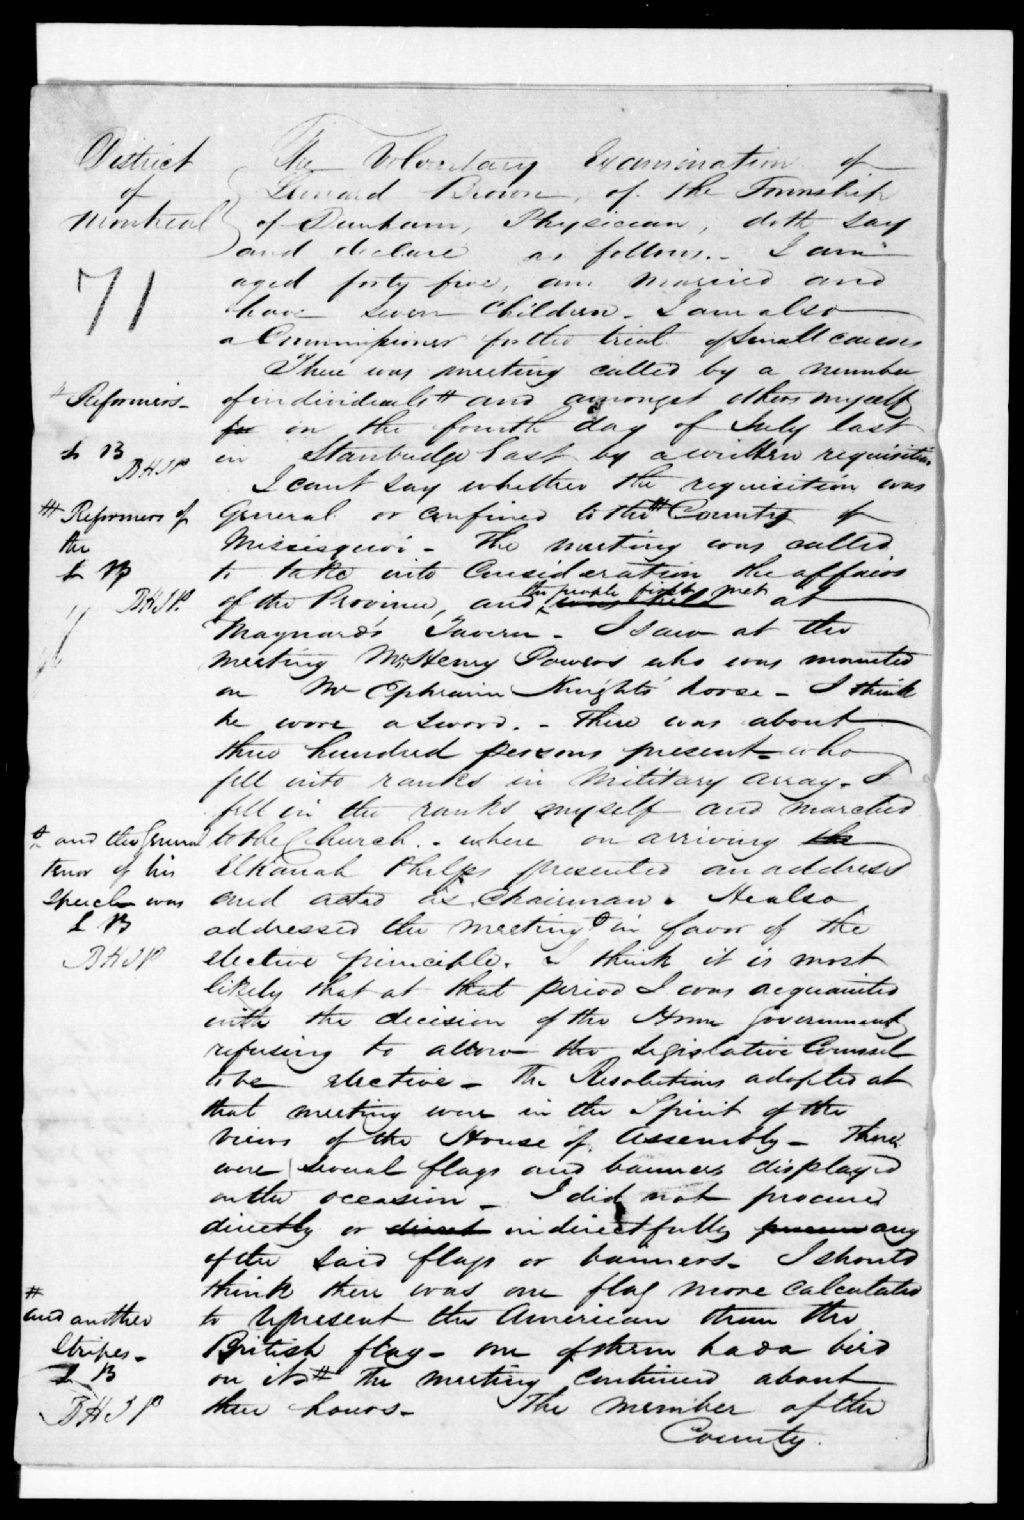 District
of
Montreal
71
The Voluntary Examination of
Leonard Brown, of the Township
of Dunham, Physician, doth say
and declare as follows. - I am
aged forty five, am married and
have seven Children - I am also
a Commissioner for the trial of small causes
There was meeting called by a number
# Reformers -
of individuals # and amongst others myself
for on the fourth day of July last
L B
BHJP
in Stanbridge East by a written requisition
I cant say whether the requisition was
## Reformers of
the
General or confined to the ## County of
Missisquoi - The meeting was called
L B
BHJP.
to take into Consideration the affairs
of the Province, and the people first met was held at
Maynard's Tavern - I saw at the
meeting Mr Henry Powers who was mounted
on Mr Ephraim Knights' horse - I think
he wore a sword. - There was about
three hundred persons present - who
fell into ranks in Military array. I
fell in the ranks myself and marched
# and the General
tenor of his
speech was
L B
BHJP
to the Church. - where on arriving the
Elkanah Phelps presented an address
and acted as Chairman. He also
addressed the meeting # in favor of the
elective principle. I think it is most
likely that at that period I was acquainted
with the decision of the Home Government
refusing to allow the Legislative Council
to be elective - The Resolutions adopted at
that meeting were in the Spirit of the
views of the House of Assembly - There
were several flags and banners displayed
on the occasion - I did not procure
directly or direct indirectfully procure any
of the said flags or banners. I should
think there was one flag more calculated
to represent the American than the
British flag - one of them had a bird
#
and another
Stripes -
L B
BHJP
on it # The meeting continued about
three hours - The member of the
County.